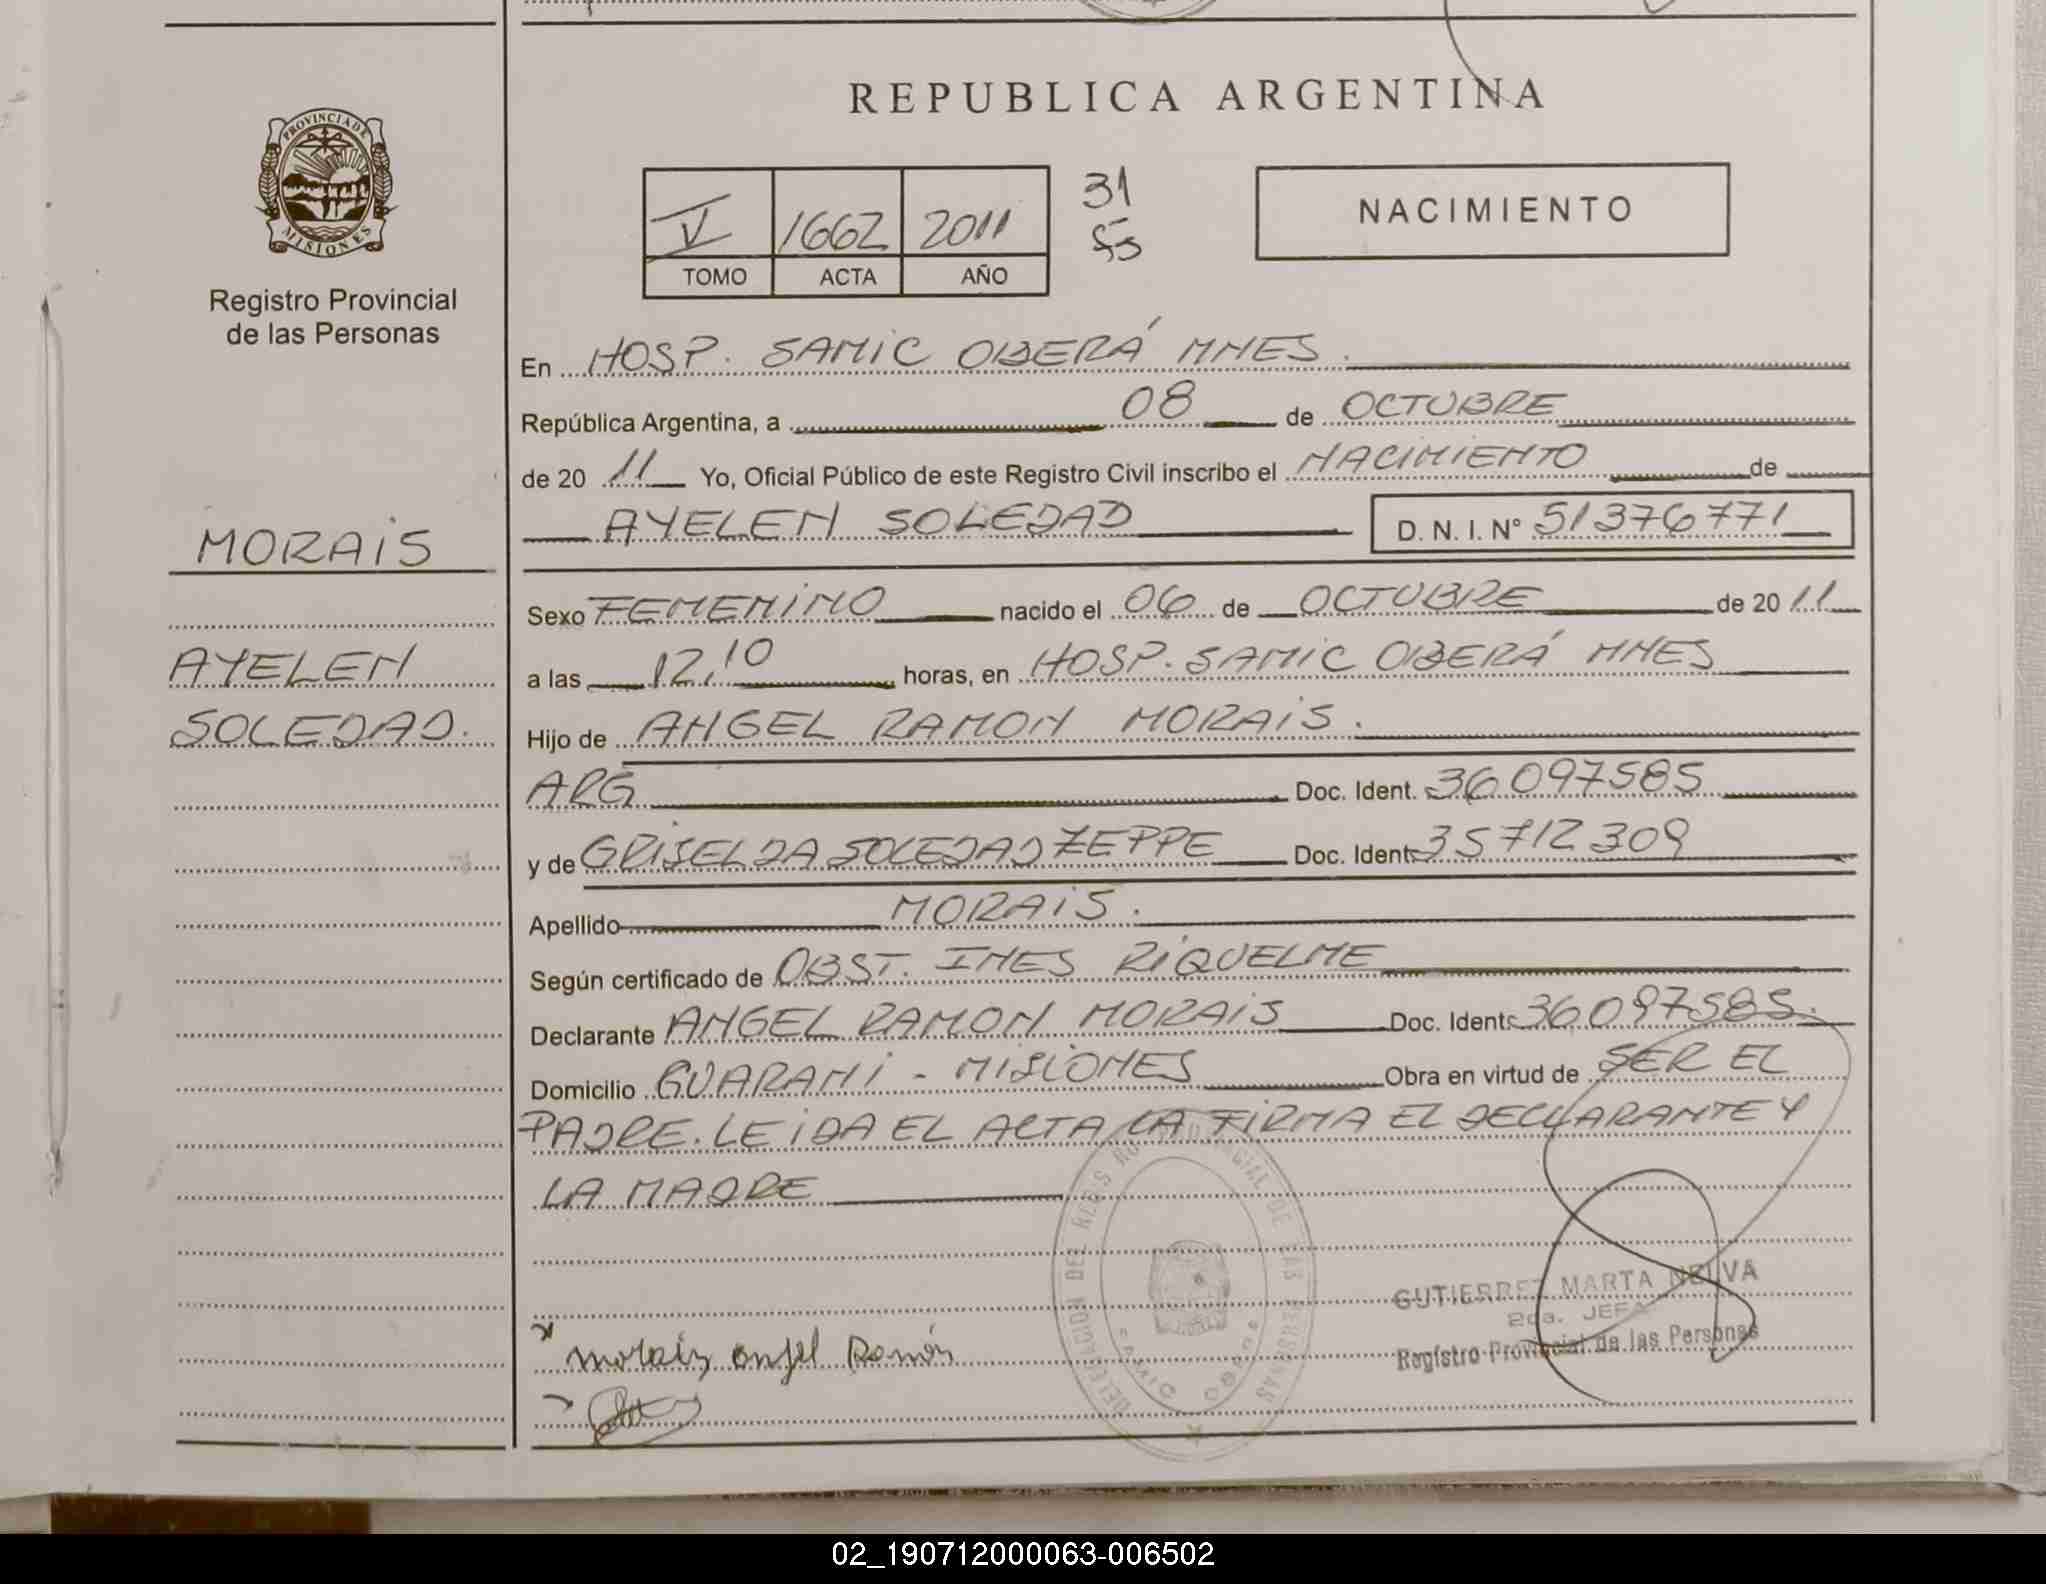 REPUBLICA ARGENTINA
PROVINCIA DE MISIONES
Registro Provincial
de las Personas
V 1662 2011
TOMO ACTA AÑO
31
NACIMIENTO
En HOSP. SAMIC OBERÁ MNES.
República Argentina, a 08 de OCTUBRE
de 20 11 Yo, Oficial Público de este Registro Civil inscribo el NACIMIENTO de
AYELEN SOLEDAD D. N. I. N° 51376771
MORAIS
AYELEN
SOLEDAD.
Sexo FEMENINO nacido el 06 de OCTUBRE de 20 11
a las 12,10 horas, en HOSP. SAMIC OBERÁ MNES
Hijo de ANGEL RAMON MORAIS.
ARG Doc. Ident. 36097585
y de GRISELDA SOLEDAD ZEPPE Doc. Ident. 35712309
Apellido MORAIS.
Según certificado de OBST. INES RIQUELME
Declarante ANGEL RAMON MORAIS Doc. Ident. 36097585.
Domicilio GUARANI - MISIONES Obra en virtud de SER EL
PADRE. LEIDA EL ACTA LA FIRMA EL DECLARANTE Y
LA MADRE
GUTIERREZ MARTA NELVA
2da. JEFA
Registro Provincial de las Personas
Morais Angel Ramón
02_190712000063-006502